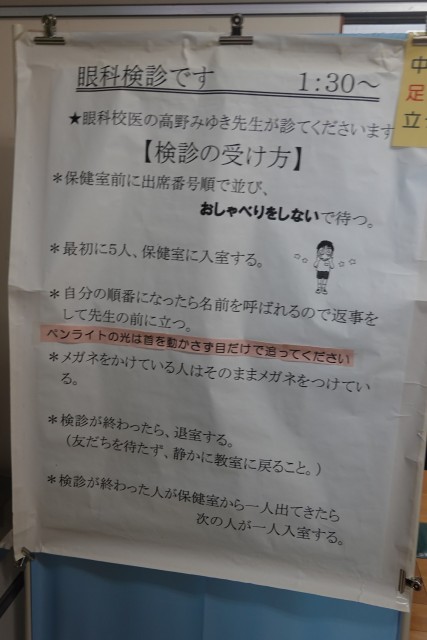 眼科検診です　1:30～
★眼科校医の高野みゆき先生が診てくださいます
【検診の受け方】
＊保健室前に出席番号順で並び、
おしゃべりをしないで待つ。
＊最初に5人、保健室に入室する。
＊自分の順番になったら名前を呼ばれるので返事を
して先生の前に立つ。
ペンライトの光は首を動かさず目だけで追ってください
＊メガネをかけている人はそのままメガネをつけてい
る。
＊検診が終わったら、退室する。
（友だちを待たず、静かに教室に戻ること。）
＊検診が終わった人が保健室から一人出てきたら
次の人が一人入室する。
中
足
立